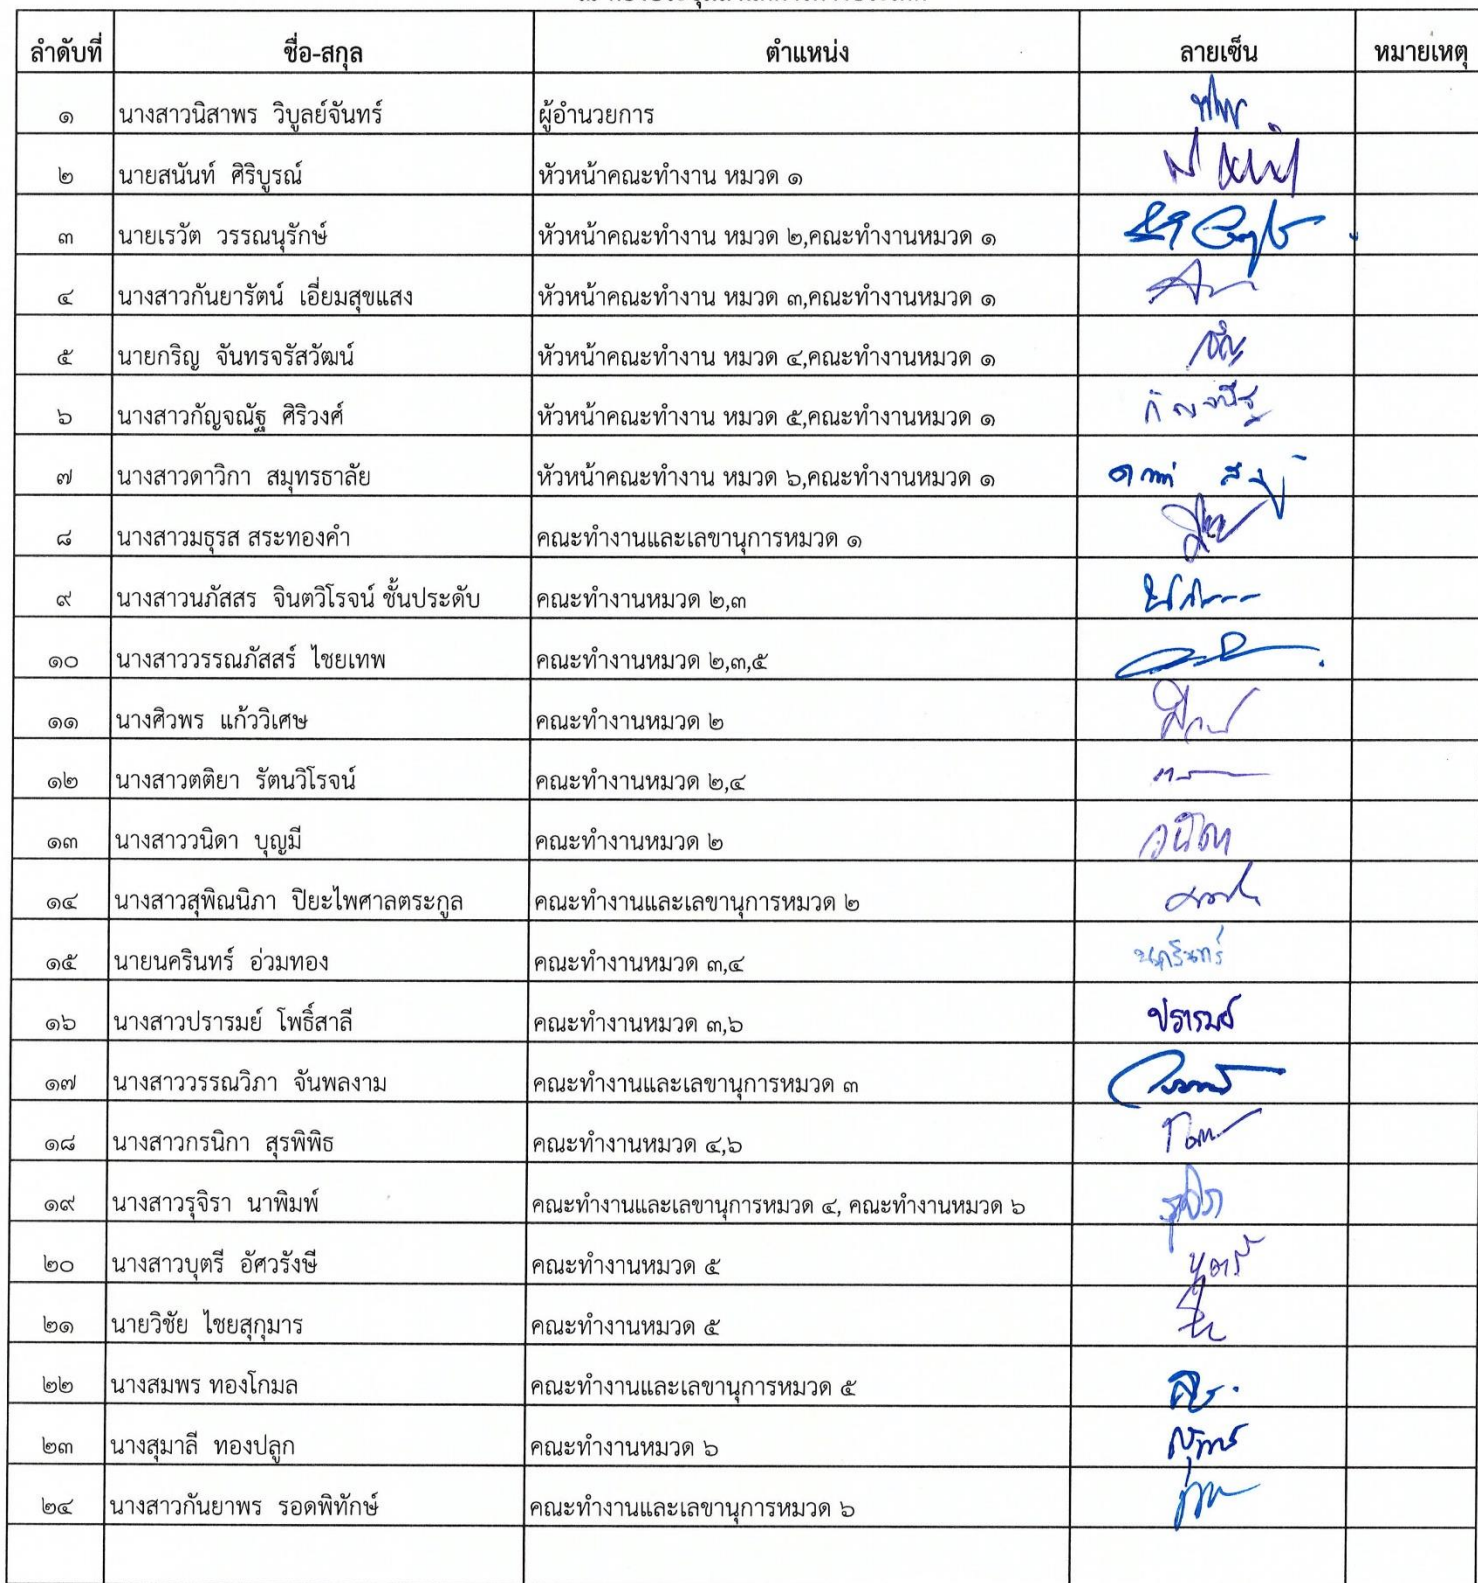 ลำดับที่ ชื่อ-สกุล ตำแหน่ง ลายเซ็น หมายเหตุ
๑ นางสาวนิสาพร วิบูลย์จันทร์ ผู้อำนวยการ
๒ นายสนันท์ ศิริบูรณ์ หัวหน้าคณะทำงาน หมวด ๑
๓ นายเรวัต วรรณนุรักษ์ หัวหน้าคณะทำงาน หมวด ๒,คณะทำงานหมวด ๑
๔ นางสาวกันยารัตน์ เอี่ยมสุขแสง หัวหน้าคณะทำงาน หมวด ๓,คณะทำงานหมวด ๑
๕ นายกริญ จันทรจรัสวัฒน์ หัวหน้าคณะทำงาน หมวด ๔,คณะทำงานหมวด ๑
๖ นางสาวกัญจณัฐ ศิริวงศ์ หัวหน้าคณะทำงาน หมวด ๕,คณะทำงานหมวด ๑ กัญจณัฐ
๗ นางสาวดาวิกา สมุทรธาลัย หัวหน้าคณะทำงาน หมวด ๖,คณะทำงานหมวด ๑
๘ นางสาวมธุรส สระทองคำ คณะทำงานและเลขานุการหมวด ๑
๙ นางสาวนภัสสร จินตวิโรจน์ ชั้นประดับ คณะทำงานหมวด ๒,๓
๑๐ นางสาววรรณภัสสร์ ไชยเทพ คณะทำงานหมวด ๒,๓,๕
๑๑ นางศิวพร แก้ววิเศษ คณะทำงานหมวด ๒
๑๒ นางสาวตติยา รัตนวิโรจน์ คณะทำงานหมวด ๒,๔
๑๓ นางสาววนิดา บุญมี คณะทำงานหมวด ๒ วนิดา
๑๔ นางสาวสุพิณนิภา ปิยะไพศาลตระกูล คณะทำงานและเลขานุการหมวด ๒
๑๕ นายนครินทร์ อ่วมทอง คณะทำงานหมวด ๓,๔ นครินทร์
๑๖ นางสาวปรารมย์ โพธิ์สาลี คณะทำงานหมวด ๓,๖ ปรารมย์
๑๗ นางสาววรรณวิภา จันพลงาม คณะทำงานและเลขานุการหมวด ๓
๑๘ นางสาวกรนิกา สุรพิพิธ คณะทำงานหมวด ๔,๖
๑๙ นางสาวรุจิรา นาพิมพ์ คณะทำงานและเลขานุการหมวด ๔, คณะทำงานหมวด ๖ รุจิรา
๒๐ นางสาวบุตรี อัศวรังษี คณะทำงานหมวด ๕ บุตรี
๒๑ นายวิชัย ไชยสุกุมาร คณะทำงานหมวด ๕
๒๒ นางสมพร ทองโกมล คณะทำงานและเลขานุการหมวด ๕
๒๓ นางสุมาลี ทองปลูก คณะทำงานหมวด ๖
๒๔ นางสาวกันยาพร รอดพิทักษ์ คณะทำงานและเลขานุการหมวด ๖